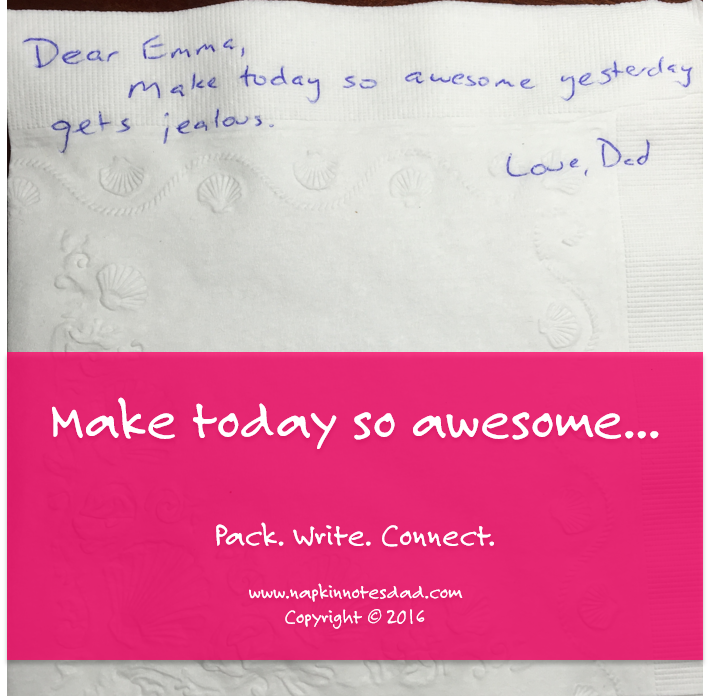 Dear Emma,
Make today so awesome yesterday
gets jealous.
Love, Dad
Make today so awesome...
Pack. Write. Connect.
www.napkinnotesdad.com
Copyright © 2016